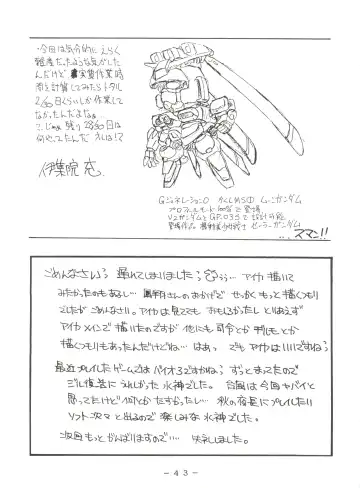 ・今回は気分的にえらく
難産だったような気がした
んだけど、実質作業時
間を計算してみたらトタル
2／30日くらいしか作業して
なかったんだよなぁ
…でじゃぁ残り 28／30日は
何やってたんだ えれは!?
伊集院 忘。
Gジェネレーション0 かくしMSの ムーンガンダム
プロフィールモード 100%で登場
V2ガンダムとGP-03Sで設計可能
登場作品 機動美少女戦士 セーラーガンダム
...スマン!!
ごめんなさいよう 遅れてしまいました
アイカ 描いて
みたかったのもあるし… さんのおかげで せっかく もっと描くつもり
でしたが ごめんなさい。アイカは見てても おもしろかったし とりあえず
アイカメインで描いたのですが 他にも司令とか とか
描くつもりもあったんだけどね… はぁっ でも アイカはいいですねぇ
最近プレイしたゲームではバイオ3ですかねぇ ずっとまってたので
ジル復活に うれしかった 水神でした。 台風は今回ヤバイと
思ってたけど 何とかたすかった… 秋の夜長にプレイしたい
ソフト 次々と出るので 楽しみな 水神でした。
次回もっとがんばりますので… 失礼しました。
－４３－